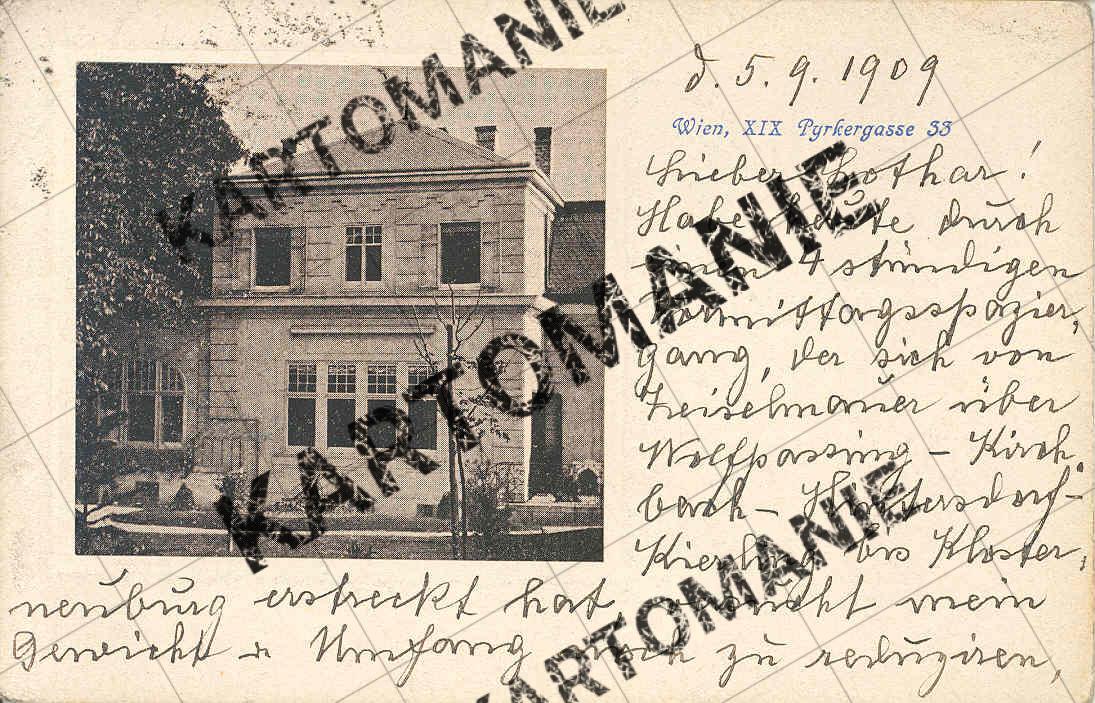 d. 5. 9. 1909
Wien, XIX Pyrkergasse 33
Lieber Lothar!
Habe heute durch
einen 4 stündigen
Vormittagsspazier,
gang, der sich von
Zeiselmauer über
Wolfpassing - Kirch,
bach - Hintersdorf-
Kierling bis Kloster,
neuburg erstreckt hat, versucht mein
Gewicht u Umfang noch zu reduziren,
KARTOMANIE
KARTOMANIE
KARTOMANIE
KARTOMANIE
KARTOMANIE